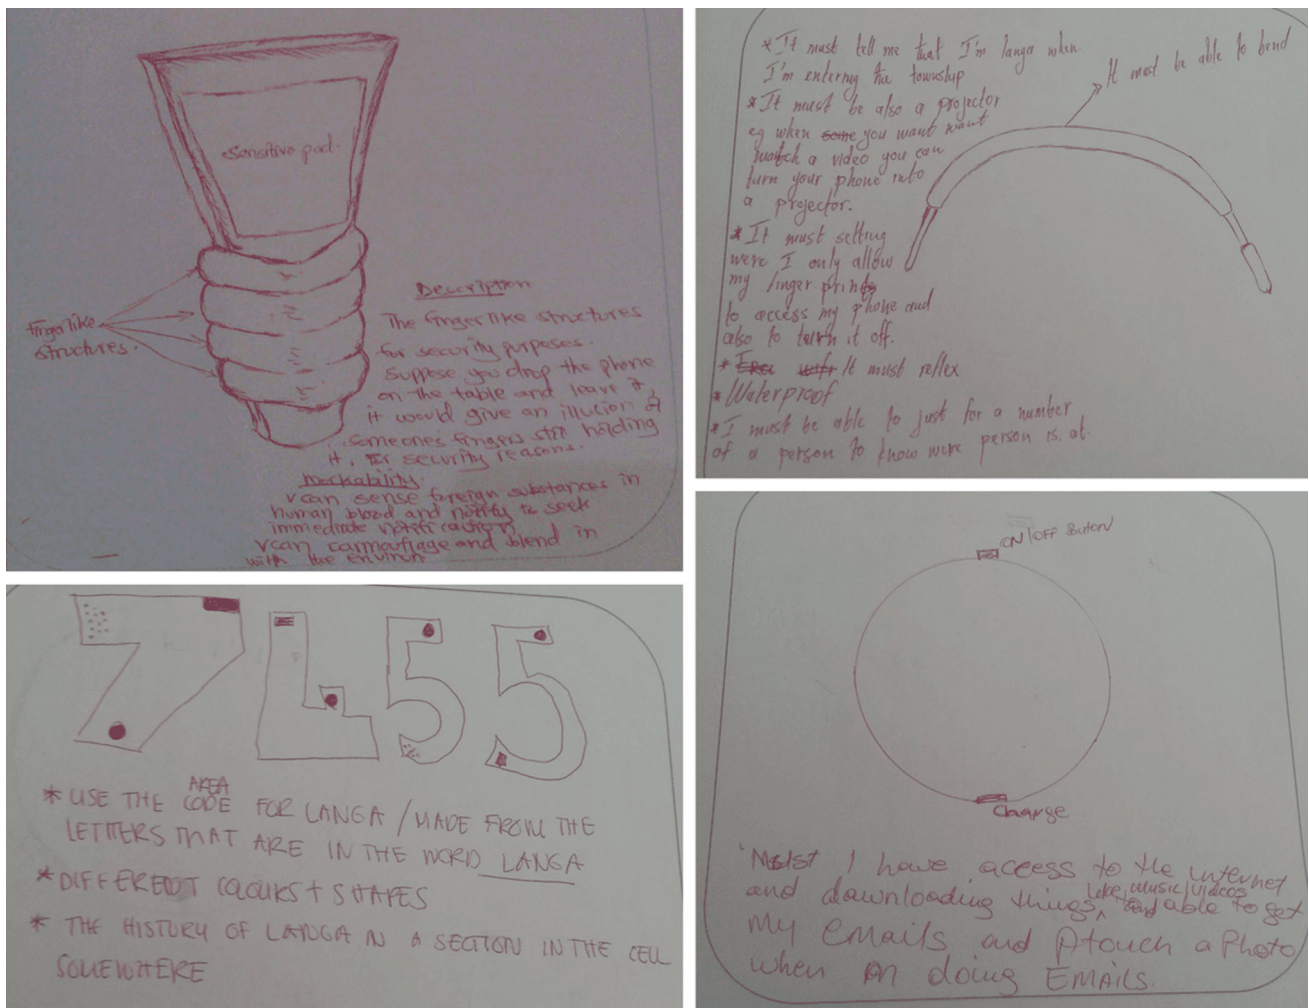 Sensitive pad.
fingerlike
structures.
Description
The fingerlike structures
for security purposes.
suppose you drop the phone
on the table and leave it,
it would give an illusion of
someones fingers still holding
it. For security reasons.
Workability
can sense foreign substances in
human blood and notify to seek
immediate notification
vcan camouflage and blend in
with the environ
* It must tell me that I'm langa when
I'm entering the township
It must be able to bend
* It must be also a projector
eg when some you want want
watch a video you can
turn your phone into
a projector.
* It must setting
were I only allow
my finger prints
to access my phone and
also to turn it off.
* It must reflex
* Waterproof
* I must be able to just for a number
of a person to know were person is at.
7455
* USE THE AREA CODE FOR LANGA / MADE FROM THE
LETTERS THAT ARE IN THE WORD LANGA
* DIFFERENT COLOURS + SHAPES
* THE HISTORY OF LANGA IN A SECTION IN THE CELL
SOMEWHERE
ON/OFF Button
Charge
Must I have access to the internet
and downloading things like, music/videos and able to get
My emails and Attouch a Photo
when on doing EMAILS.